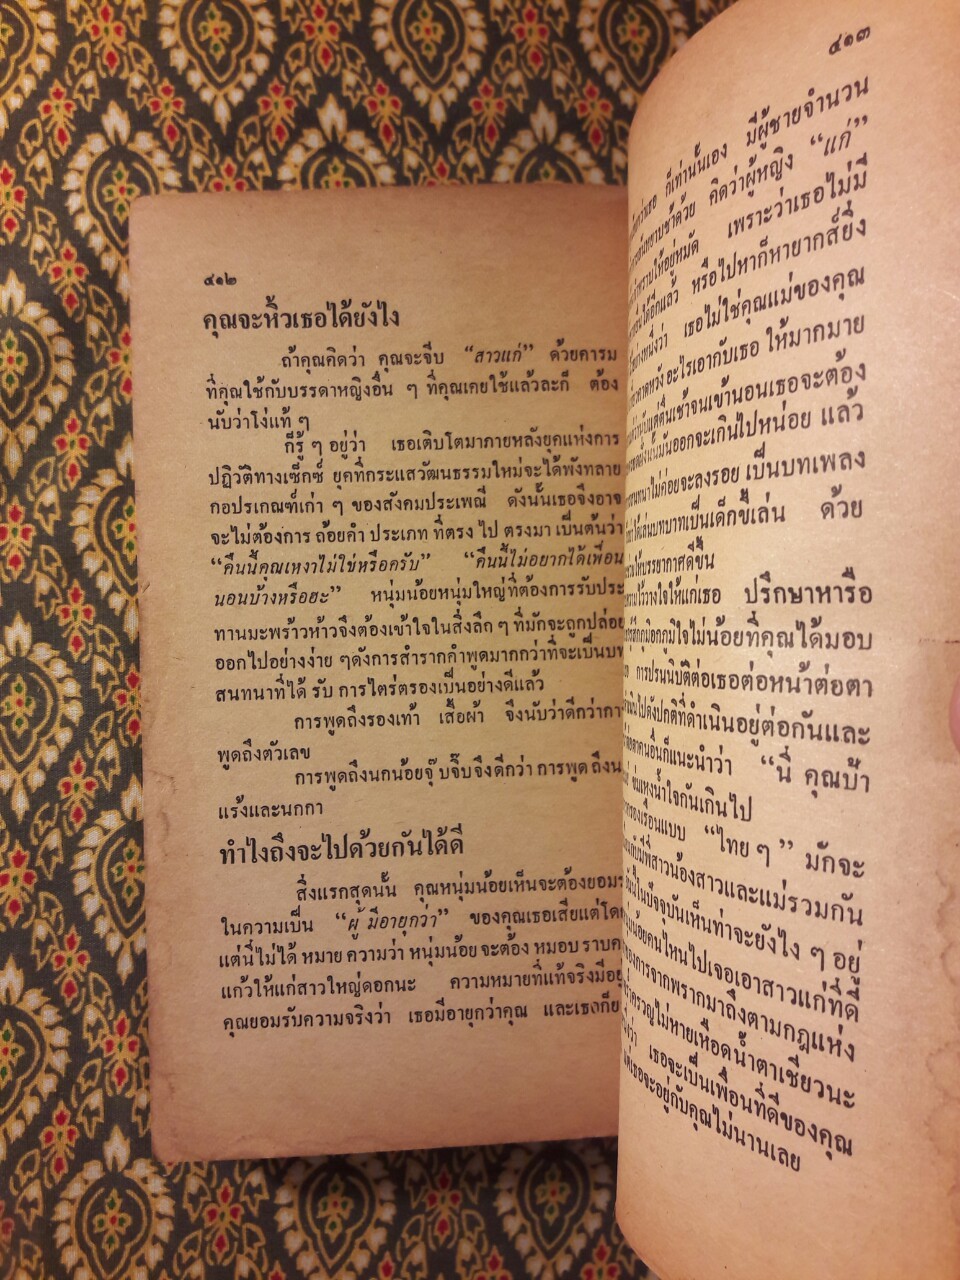 ๔๑๒
คุณจะหิ้วเธอได้ยังไง
ถ้าคุณคิดว่า คุณจะจีบ “สาวแก่” ด้วยคารม
ที่คุณใช้กับบรรดาหญิงอื่น ๆ ที่คุณเคยใช้แล้วละก็ ต้อง
นับว่าโง่แท้ ๆ
ก็รู้ ๆ อยู่ว่า เธอเติบโตมาภายหลังยุคแห่งการ
ปฏิวัติทางเซ็กซ์ ยุคที่กระแสวัฒนธรรมใหม่จะได้พังทลาย
กอปรเกณฑ์เก่า ๆ ของสังคมประเพณี ดังนั้นเธอจึงอาจ
จะไม่ต้องการ ถ้อยคำ ประเภท ที่ตรง ไป ตรงมา เป็นต้นว่า
“คืนนี้คุณเหงาไม่ใช่หรือครับ” “คืนนี้ไม่อยากได้เพื่อน
นอนบ้างหรือฮะ” หนุ่มน้อยหนุ่มใหญ่ที่ต้องการรับประ
ทานมะพร้าวห้าวจึงต้องเข้าใจในสิ่งลึก ๆ ที่มักจะถูกปล่อย
ออกไปอย่างง่าย ๆดังการสำรากคำพูดมากกว่าที่จะเป็นบท
สนทนาที่ได้ รับ การไตร่ตรองเป็นอย่างดีแล้ว
การพูดถึงรองเท้า เสื้อผ้า จึงนับว่าดีกว่าการ
พูดถึงตัวเลข
การพูดถึงนกน้อยจุ๊บจิ๊บจึงดีกว่า การพูด ถึงน
แร้งและนกกา
ทำไงถึงจะไปด้วยกันได้ดี
สิ่งแรกสุดนั้น คุณหนุ่มน้อยเห็นจะต้องยอมร
ในความเป็น “ผู้ มีอายุกว่า” ของคุณเธอเสียแต่โดย
แต่นี่ไม่ได้ หมาย ความว่า หนุ่มน้อย จะต้อง หมอบ ราบค
แก้วให้แก่สาวใหญ่ดอกนะ ความหมายที่แท้จริงมีอยู่
คุณยอมรับความจริงว่า เธอมีอายุกว่าคุณ และเธอก็ย
๔๑๓
กว่าเธอ ก็เท่านั้นเอง มีผู้ชายจำนวน
หยาบช้าด้วย คิดว่าผู้หญิง “แก่”
ให้อยู่หมัด เพราะว่าเธอไม่มี
ได้อีกแล้ว หรือไปหาก็หายากส์ยิ่ง
อย่างหนึ่งว่า เธอไม่ใช่คุณแม่ของคุณ
คาดหวัง อะไรเอากับเธอ ให้มากมาย
แต่ตื่นเช้าจนเข้านอนเธอจะต้อง
นั้นมันออกจะเกินไปหน่อย แล้ว
ไม่ค่อยจะลงรอย เป็นบทเพลง
ได้เล่นบทบาทเป็นเด็กขี้เล่น ด้วย
ให้บรรยากาศดีขึ้น
ไว้วางใจให้แก่เธอ ปรึกษาหารือ
ภูมิใจไม่น้อยที่คุณได้มอบ
การปรนนิบัติต่อเธอต่อหน้าต่อตา
ไปดังปกติที่ดำเนินอยู่ต่อกันและ
คนอื่นก็แนะนำว่า “นี่ คุณป้า
ข่มเหงน้ำใจกันเกินไป
ของเรือนแบบ “ไทย ๆ” มักจะ
มีพี่สาวน้องสาวและแม่รวมกัน
ในปัจจุบันเห็นท่าจะยังไง ๆ อยู่
น้อยคนไหนไปเจอเอาสาวแก่ที่ดี
ของการจากพรากมาถึงตามกฎแห่ง
ครวญไม่หายเหือดน้ำตาเชียวนะ
ว่า เธอจะเป็นเพื่อนที่ดีของคุณ
แต่เธอจะอยู่กับคุณไม่นานเลย